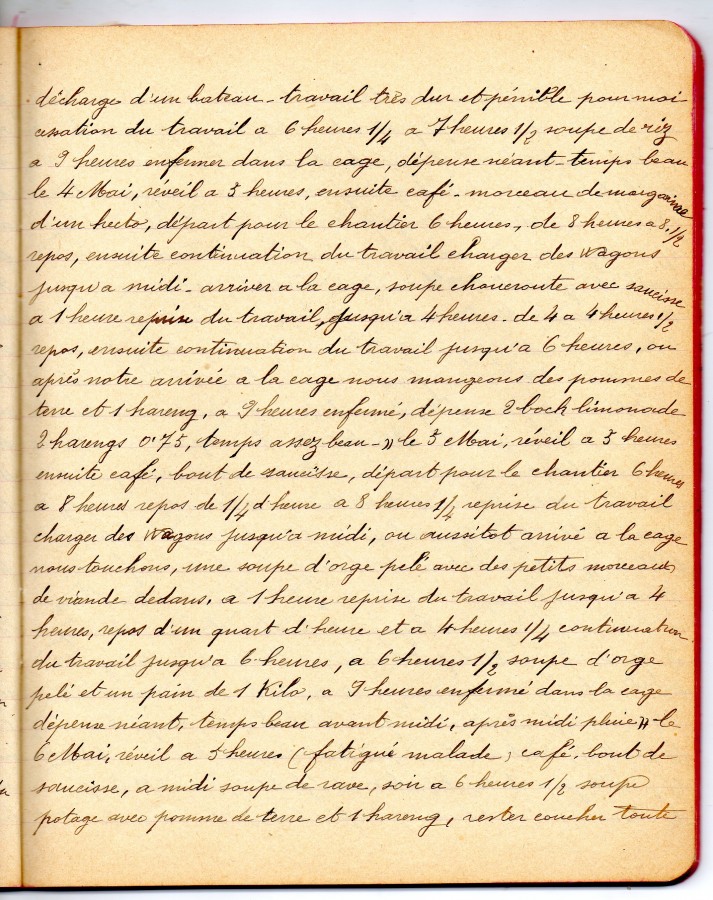 décharge d'un bateau - travail très dur et pénible pour moi
cessation du travail a 6 heures 1/4 a 7 heures 1/2 soupe de riz
a 9 heures enfermer dans la cage, dépense néant - temps beau
le 4 Mai, réveil a 5 heures, ensuite café - morceau de margarine
d'un hecto, départ pour le chantier 6 heures, de 8 heures a 8. 1/2
repos, ensuite continuation du travail charger des wagons
jusqu'a midi - arriver a la cage, soupe choucroute avec saucisse
a 1 heure reprise du travail, jusqu'a 4 heures - de 4 a 4 heures 1/2
repos, ensuite continuation du travail jusqu'a 6 heures, ou
après notre arrivée a la cage nous mangeons des pommes de
terre et 1 hareng, a 9 heures enfermé, dépense 2 bock limonade
2 harengs 0'75, temps assez beau - » le 5 Mai, réveil a 5 heures
ensuite café, bout de saucisse, départ pour le chantier 6 heures
a 8 heures repos de 1/4 d'heure a 8 heures 1/4 reprise du travail
charger des wagons jusqu'a midi, ou aussitot arrivé a la cage
nous touchons, une soupe d'orge pelé avec des petits morceaux
de viande dedans, a 1 heure reprise du travail jusqu'a 4
heures, repos d'un quart d'heure et a 4 heures 1/4 continuation
du travail jusqu'a 6 heures, a 6 heures 1/2 soupe d'orge
pelé et un pain de 1 Kilo, a 9 heures enfermé dans la cage
dépense néant, temps beau avant midi, après midi pluie » le
6 Mai, réveil a 5 heures (fatigué malade) café, bout de
saucisse, a midi soupe de rave, soir a 6 heures 1/2 soupe
potage avec pomme de terre et 1 hareng, rester coucher toute